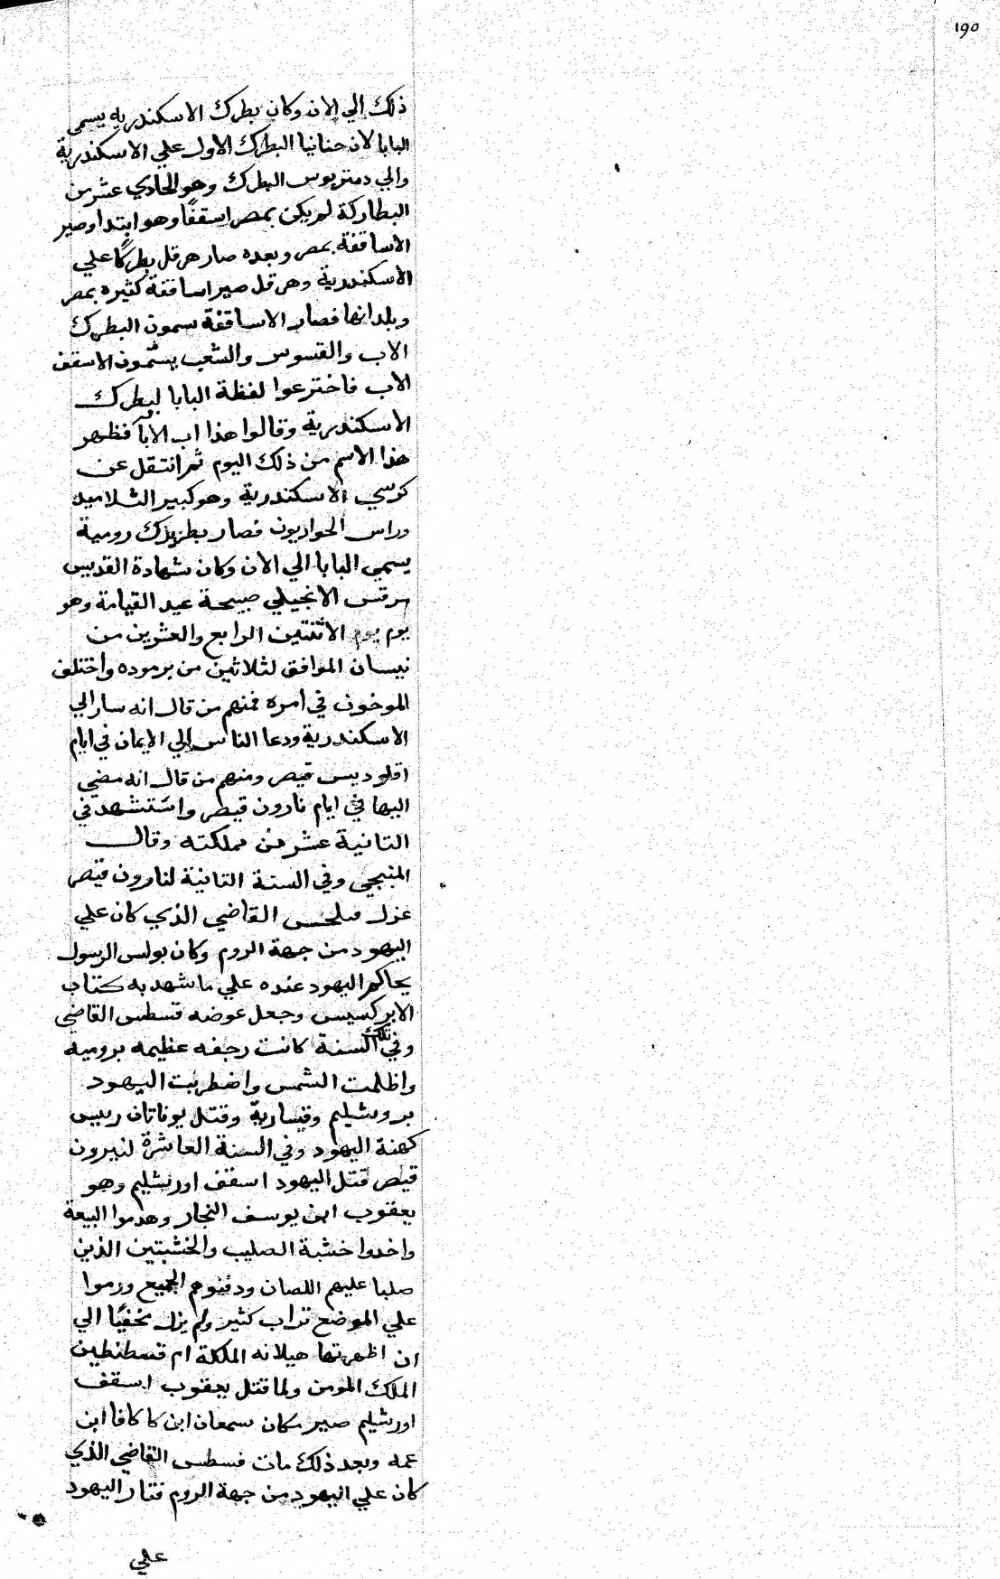 ١٩٥
ذلك الي الان وكان بطرك الاسكندريه يسمي
البابا لان حنانيا البطرك الاول علي الاسكندرية
والي دمتريوس البطرك وهو الحادي عشر من
البطاركة لم يكن بمصر اسقفًا وهو ابتدا وصير
الاساقفة بمصر وبعده صار هرقل بطركًا علي
الاسكندرية وهرقل صير اساقفة كثيره بمصر
وبلدانها فصار الاساقفة يسمون البطرك
الاب والقسوس والشعب يسمّون الاسقف
الاب فاخترعوا لفظة البابا لبطرك
الاسكندرية وقالوا هذا اب الابآ فظهر
هذا الاسم من ذلك اليوم ثم انتقل عن
كرسي الاسكندرية وهو كبير التلاميد
وراس الحواريون فصار بطريرك رومية
يسمي البابا الي الان وكان شهادة القديس
مرقس الانجيلي صبيحة عيد القيامة وهو
يوم يوم الاثنتين الرابع والعشرين من
نيسان الموافق لثلاثين من برموده واختلف
الموخون في امره فمنهم من قال انه سار الي
الاسكندرية ودعا الناس الي الايمان في ايام
اقلوديس قيصر ومنهم من قال انه مضي
اليها في ايام نارون قيصر واستشهد في
التانية عشر من مملكته وقال
المنبجي وفي السنة التانية لنارون قيصر
عزل القاضي الذي كان علي
اليهود من جهة الروم وكان بولس الرسول
يحاكم اليهود عنده علي ما شهد به كتاب
الابركسيس وجعل عوضه فسطس القاضي
وفي تلك السنة كانت رجفه عظيمه برومية
واظلمت الشمس واضطربت اليهود
بروشليم وقيسارية وقتل يوناتان رييس
كهنة اليهود وفي السنة العاشرة لنيرون
قيصر قتل اليهود اسقف اورشليم وهو
يعقوب ابن يوسف النجار وهدموا البيعة
واخدوا خشبة الصليب والخشبتين الذين
صلبا عليهم اللصان ودفنوهم الجميع ورموا
علي الموضع تراب كثير ولم يزل مخفيًا الي
ان اظهرتها هيلانه الملكة ام قسطنطين
الملك المومن ولما قتل يعقوب اسقف
اورشليم صير مكان سمعان ابن كاكافا ابن
عمه وبعد ذلك مات فسطس القاضي الذي
كان علي اليهود من جهة الروم فتار اليهود
علي